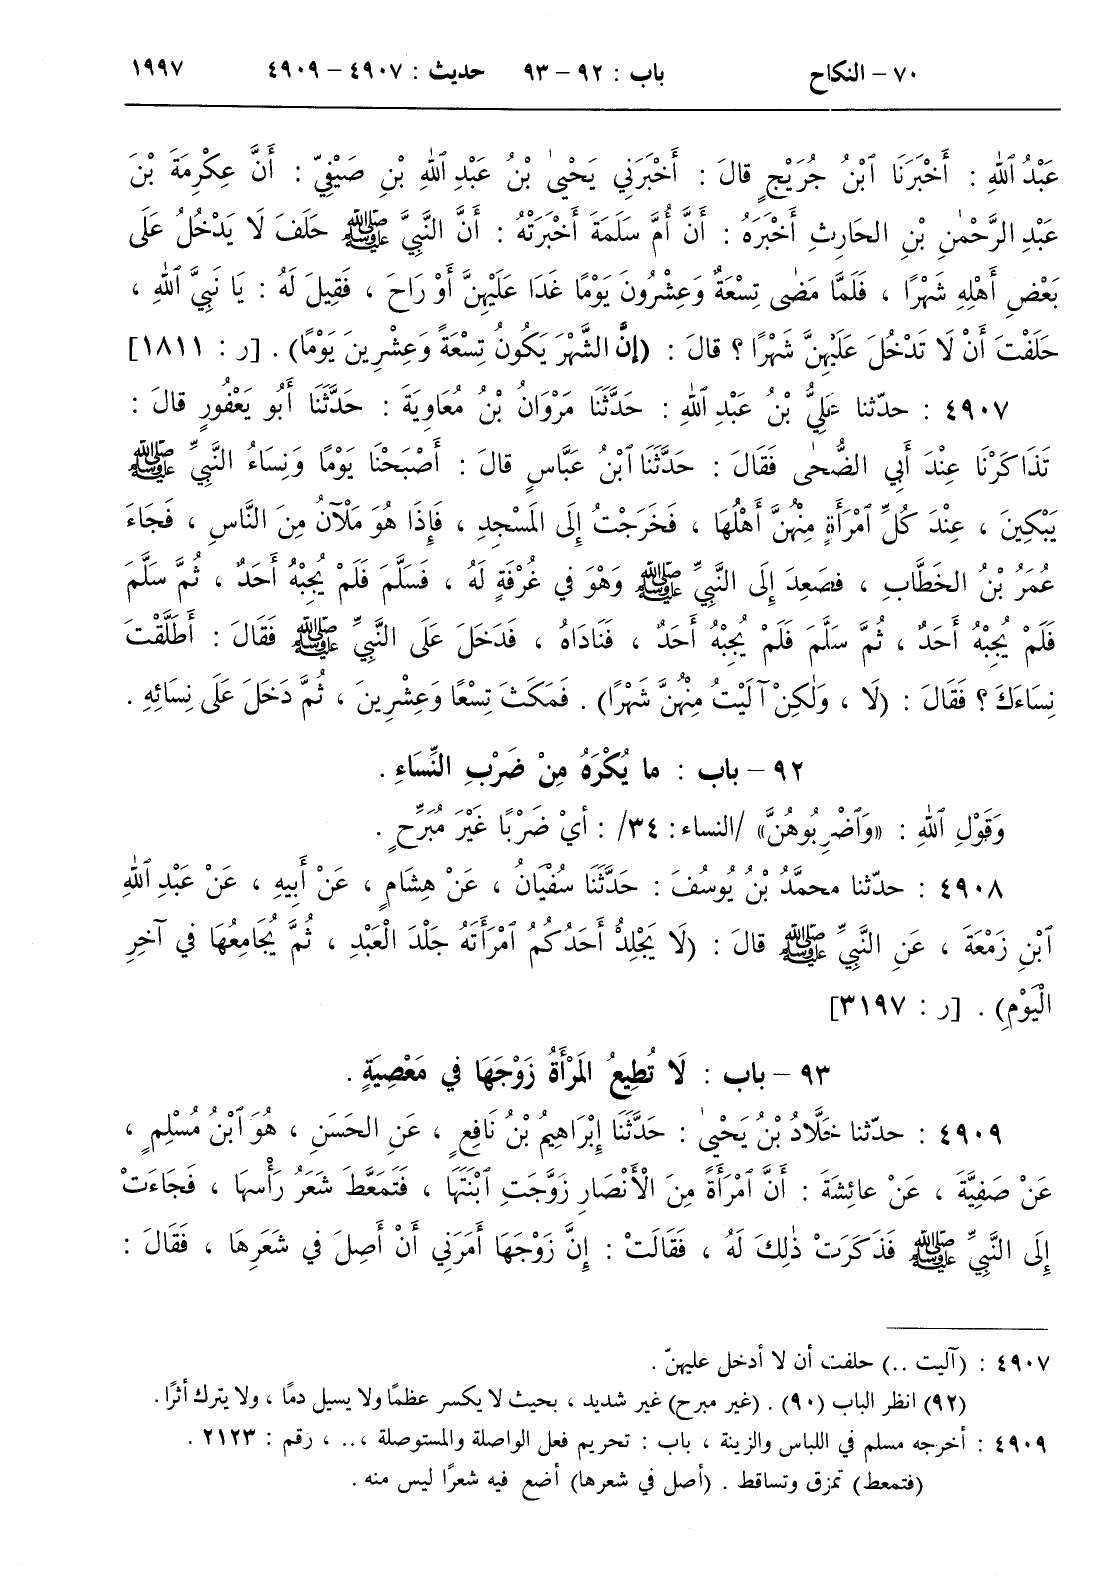 ٧٠ – النكاح باب : ٩٢ – ٩٣ حديث : ٤٩٠٧ – ٤٩٠٩ ١٩٩٧
عَبْدُ ٱللهِ : أَخْبَرَنَا ٱبْنُ جُرَيْجٍ قالَ : أَخْبَرَنِي يَحْيىٰ بْنُ عَبْدِ ٱللهِ بْنِ صَيْفِيّ : أَنَّ عِكْرِمَةَ بْنَ
عَبْدِ الرَّحْمٰنِ بْنِ الحَارِثِ أَخْبَرَهُ : أَنَّ أُمَّ سَلَمَةَ أَخْبَرَتْهُ : أَنَّ النَّبِيَّ ﷺ حَلَفَ لَا يَدْخُلُ عَلَى
بَعْضِ أَهْلِهِ شَهْرًا ، فَلَمَّا مَضٰى تِسْعَةٌ وَعِشْرُونَ يَوْمًا غَدَا عَلَيْهِنَّ أَوْ رَاحَ ، فَقِيلَ لَهُ : يَا نَبِيَّ ٱللهِ ،
حَلَفْتَ أَنْ لَا تَدْخُلَ عَلَيْهِنَّ شَهْرًا ؟ قالَ : (إِنَّ الشَّهْرَ يَكُونُ تِسْعَةً وَعِشْرِينَ يَوْمًا) . [ر : ١٨١١]
٤٩٠٧ : حدّثنا عَلِيُّ بْنُ عَبْدِ ٱللهِ : حَدَّثَنَا مَرْوَانُ بْنُ مُعَاوِيَةَ : حَدَّثَنَا أَبُو يَعْفُورٍ قالَ :
تَذَاكَرْنَا عِنْدَ أَبِي الضُّحٰى فَقَالَ : حَدَّثَنَا ٱبْنُ عَبَّاسٍ قالَ : أَصْبَحْنَا يَوْمًا وَنِسَاءُ النَّبِيِّ ﷺ
يَبْكِينَ ، عِنْدَ كُلِّ ٱمْرَأَةٍ مِنْهُنَّ أَهْلُهَا ، فَخَرَجْتُ إِلَى المَسْجِدِ ، فَإِذَا هُوَ مَلْآنُ مِنَ النَّاسِ ، فَجَاءَ
عُمَرُ بْنُ الخَطَّابِ ، فصَعِدَ إِلَى النَّبِيِّ ﷺ وَهْوَ فِي غُرْفَةٍ لَهُ ، فَسَلَّمَ فَلَمْ يُجِبْهُ أَحَدٌ ، ثُمَّ سَلَّمَ
فَلَمْ يُجِبْهُ أَحَدٌ ، ثُمَّ سَلَّمَ فَلَمْ يُجِبْهُ أَحَدٌ ، فَنَادَاهُ ، فَدَخَلَ عَلَى النَّبِيِّ ﷺ فَقَالَ : أَطَلَّقْتَ
نِسَاءَكَ ؟ فَقَالَ : (لَا ، وَلٰكِنْ آلَيْتُ مِنْهُنَّ شَهْرًا) . فَمَكَثَ تِسْعًا وَعِشْرِينَ ، ثُمَّ دَخَلَ عَلَى نِسَائِهِ .
٩٢ – باب : ما يُكْرَهُ مِنْ ضَرْبِ النِّسَاءِ .
وَقَوْلِ ٱللهِ : «وَٱضْرِبُوهُنَّ» /النساء: ٣٤/ : أَيْ ضَرْبًا غَيْرَ مُبَرِّحٍ .
٤٩٠٨ : حدّثنا محمَّدُ بْنُ يُوسُفَ : حَدَّثَنَا سُفْيَانُ ، عَنْ هِشَامٍ ، عَنْ أَبِيهِ ، عَنْ عَبْدِ ٱللهِ
ٱبْنِ زَمْعَةَ ، عَنِ النَّبِيِّ ﷺ قالَ : (لَا يَجْلِدُ أَحَدُكُمُ ٱمْرَأَتَهُ جَلْدَ الْعَبْدِ ، ثُمَّ يُجَامِعُهَا فِي آخِرِ
الْيَوْمِ) . [ر : ٣١٩٧]
٩٣ – باب : لَا تُطِيعُ المَرْأَةُ زَوْجَهَا فِي مَعْصِيَةٍ .
٤٩٠٩ : حدّثنا خَلَّادُ بْنُ يَحْيىٰ : حَدَّثَنَا إِبْرَاهِيمُ بْنُ نَافِعٍ ، عَنِ الحَسَنِ ، هُوَ ٱبْنُ مُسْلِمٍ ،
عَنْ صَفِيَّةَ ، عَنْ عائِشَةَ : أَنَّ ٱمْرَأَةً مِنَ الْأَنْصَارِ زَوَّجَتِ ٱبْنَتَهَا ، فَتَمَعَّطَ شَعَرُ رَأْسِهَا ، فَجَاءَتْ
إِلَى النَّبِيِّ ﷺ فَذَكَرَتْ ذٰلِكَ لَهُ ، فَقَالَتْ : إِنَّ زَوْجَهَا أَمَرَنِي أَنْ أَصِلَ فِي شَعَرِهَا ، فَقَالَ :
٤٩٠٧ : (آليت ..) حلفت أن لا أدخل عليهنّ .
(٩٢) انظر الباب (٩٠) . (غير مبرح) غير شديد ، بحيث لا يكسر عظمًا ولا يسيل دمًا ، ولا يترك أثرًا .
٤٩٠٩ : أخرجه مسلم في اللباس والزينة ، باب : تحريم فعل الواصلة والمستوصلة ،.. ، رقم : ٢١٢٣ .
(فتمعط) تمزق وتساقط . (أصل في شعرها) أضع فيه شعرًا ليس منه .